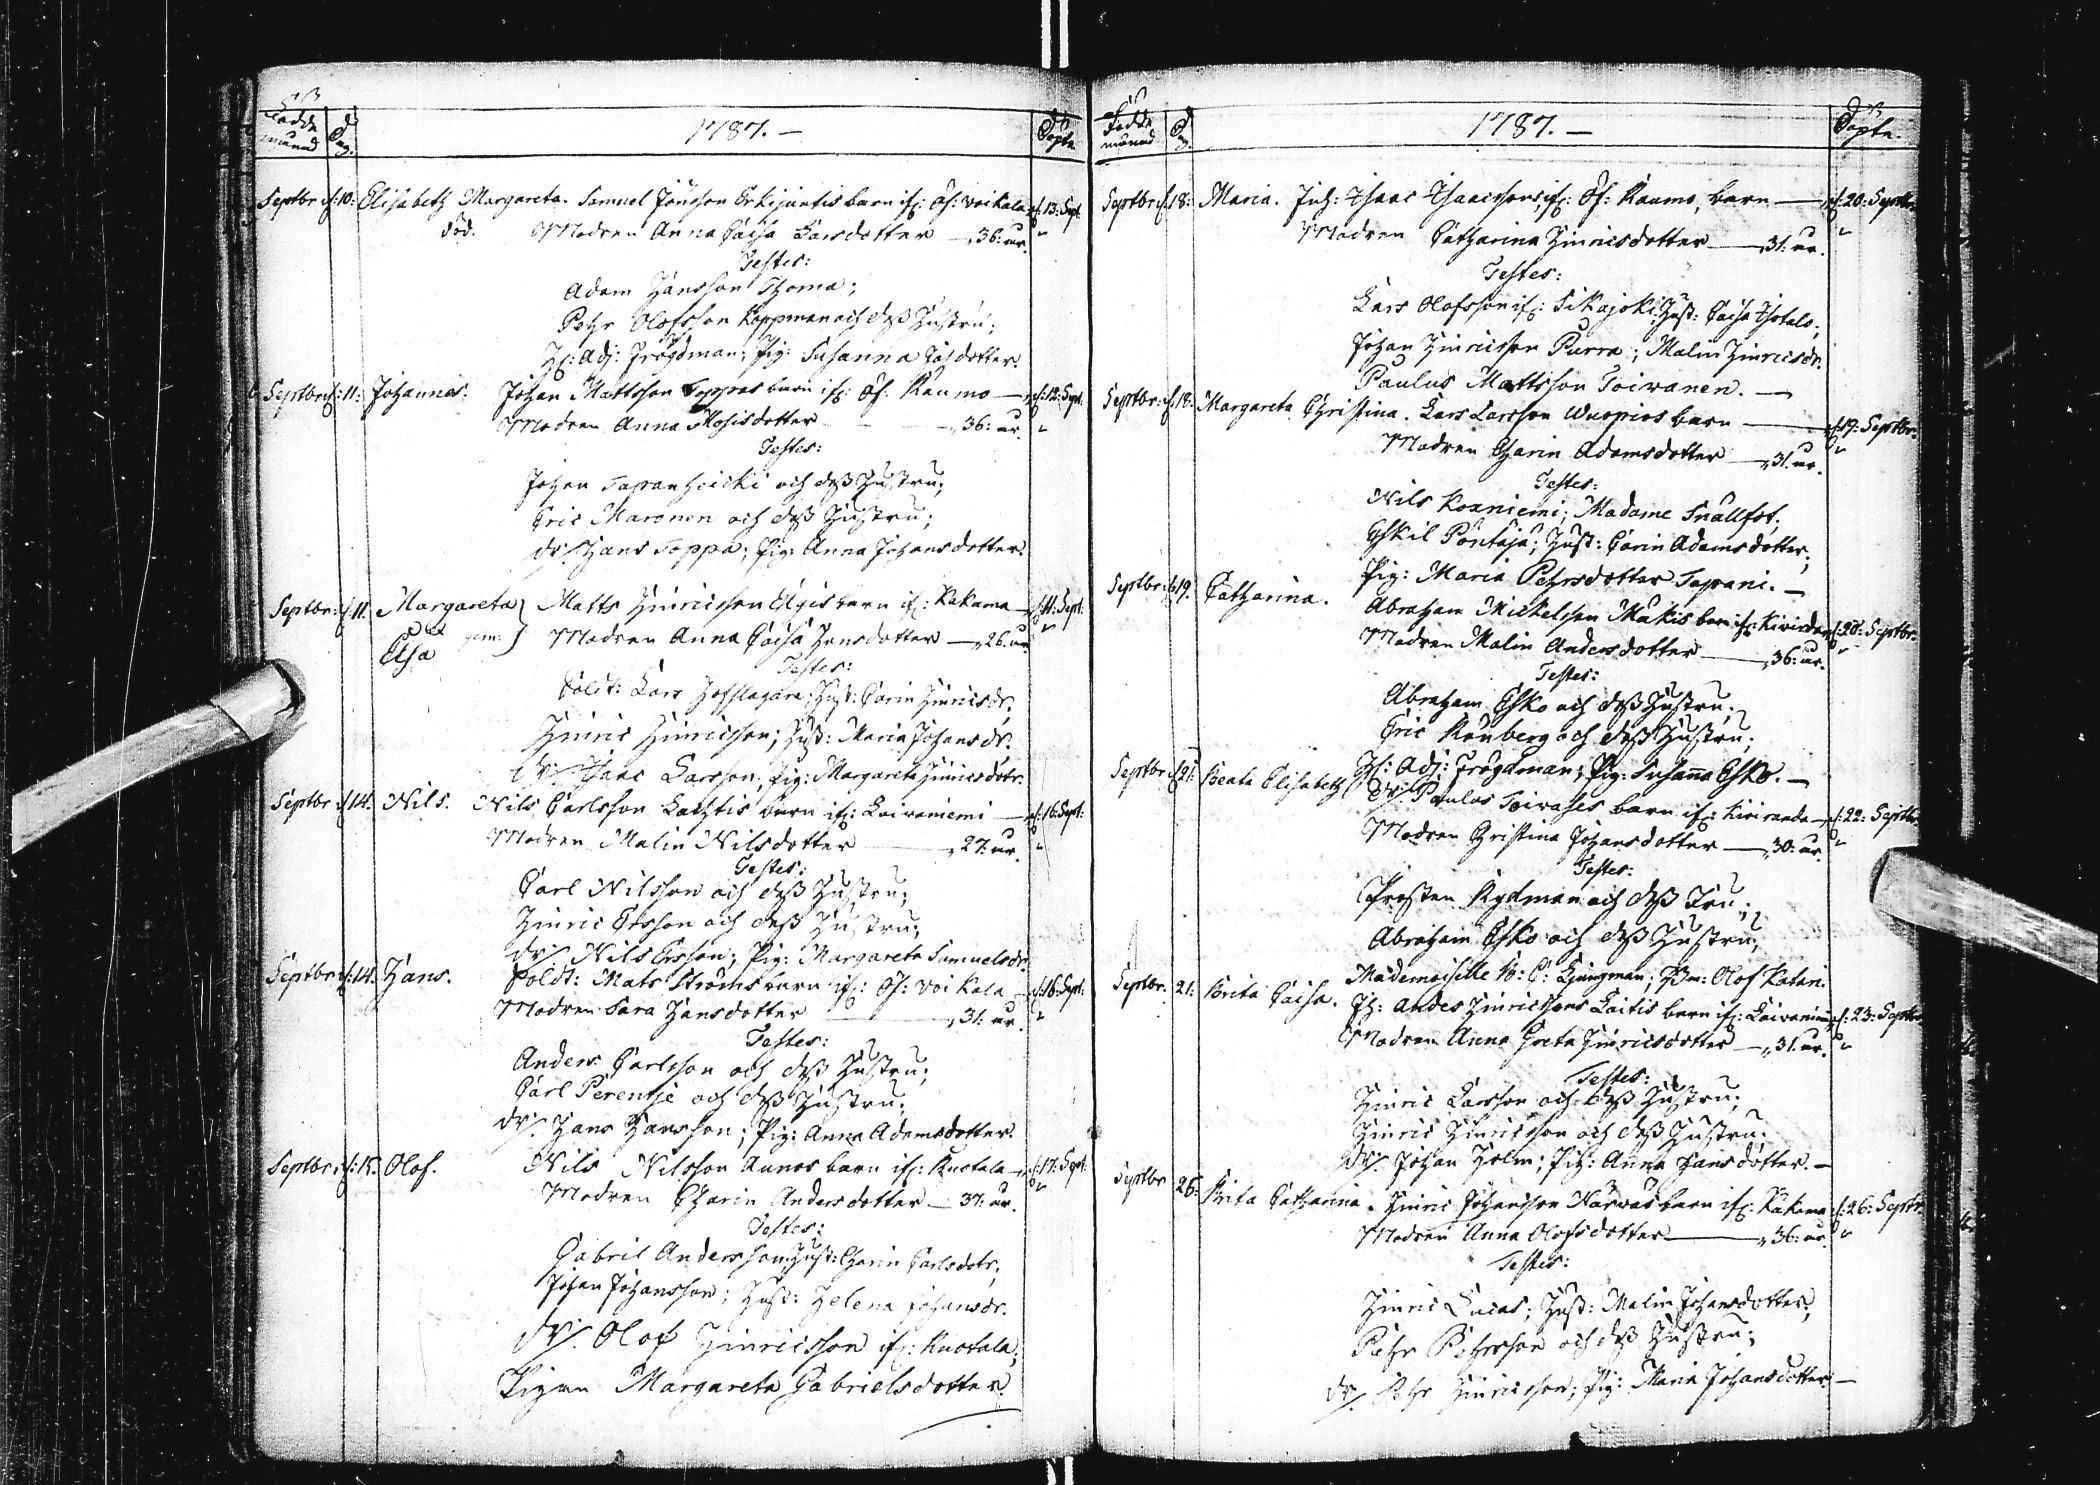 Födde månad Dag. 1787. — Döpte.
Septbr d: 10: Elisabeth Margareta. Samuel Jönsson Erkijuntis barn if: Öf: Voikala d: 13: Sept.
död. Modren Anna Caisa Larsdotter — 36: år.
Testes:
Adam Hansson Thoma;
Pehr Olofsson Koppman och dess Hustru;
H: Adj: Frögdman; Pig: Susanna dotter.
Septbr d: 11: Johannes. Johan Mattsson barn if: Öf: Raumo — d: 12: Sept.
Modren Anna Mosisdotter — 36: år.
Testes:
Johan Tapanheicki och dess Hustru;
Eric Maronen och dess Hustru;
Dr. Hans Soppa; Pig: Anna Johansdotter.
Septbr: d: 11. Margareta Matts Hinricsson barn if: Kakama — d: 11: Sept.
et gem: Modren Anna Caisa Hansdotter — 26. år
Elsa Testes:
Soldt: Lars Hofslagare; Hust: Carin Hinricsdr.
Hinric Hinricsson; Hust: Maria Johansdr.
Dr. Isaac Larsson; Pig: Margareta Hinricsdotr.
Septbr d: 14. Nils. Nils Carlsson Lachtis barn if: Laivaniemi — d: 16: Sept:
Modren Malin Nilsdotter — 27: år.
Testes:
Carl Nilsson och dess Hustru;
Hinric Ersson och dess Hustru;
Dr. Nils Ersson; Pig: Margareta Samuelsdr.
Septbr: d: 14. Hans. Soldt: Mats Ströms barn if: Öf: Voikala — d: 16: Sept:
Modren Sara Hansdotter — 31: år.
Testes:
Anders Carlsson och dess Hustru;
Carl Perentje och dess Hustru;
Dr. Hans Hansson; Pig: Anna Adamsdotter.
Septbr: d: 15. Olof. Nils Nilsson Aunos barn if: Ruotala — d: 17: Sept.
Modren Charin Andersdotter — 37: år.
Testes:
Gabriel Andersson; Hust: Charin Carlsdotr;
Johan Johansson; Hust: Helena Johansdr.
Dr. Olof Hinricsson if: Ruotala;
Pigan Margareta Gabrielsdotter.
Födde månad Dag. 1787. — Döpte.
Septbr: d: 18: Maria. Inh: Isaac Isaacssons, if: Öf: Raumo, barn — d: 20: Septbr.
Modren Catharina Hinricsdotter — 31: år.
Testes:
Lars Olofsson if: Sikajoki; Hust: Caisa Isotalo;
Johan Hinricsson Purra; Malin Hinricsdr.
Paulus Mattsson Toivanen. —
Septbr: d: 18: Margareta Christina. Lars Larsson Wuopios barn — d: 19: Septbr.
Modren Charin Adamsdotter — 31. år.
Testes:
Nils Koaniemi; Madame Snällfot;
Eskil Pöntäjä; Hust: Carin Adamsdotter;
Pig: Maria Pehrsdotter Tapani. —
Septbr: d: 19. Catharina. Abraham Michelsson Mäkis barn if: Kiviranda d: 20: Septbr:
Modren Malin Andersdotter — 36: år.
Testes:
Abraham Esko och dess Hustru;
Eric Rönberg och dess Hustru;
H: Adj: Frögdman; Pig: Susanna Esko. —
Septbr: d: 21: Beata Elisabeth Dr. Paulus Toivases barn if: Kiviranda — d: 22: Septbr.
Modren Christina Johansdotter — 30: år.
Testes:
Prosten Rydman och dess Fru;
Abraham Esko och dess Hustru;
Mademoiselle B: C: Ljungman; Olof Katari.
Septbr. 21: Brita Caisa. Anders Hinricssons Laitis barn if: Laivaniemi d: 23: Septbr.
Modren Anna Greta Hinricsdotter — 31. år.
Testes:
Hinric Larsson och dess Hustru;
Hinric Hinricsson och dess Hustru;
Dr. Johan Holm; Pig: Anna Hansdotter. —
Septbr 26: Brita Catharina. Hinric Johansson Närwäs barn if: Kakama d: 26: Septbr.
Modren Anna Olofsdotter — 36: år.
Testes:
Hinric Lucas; Hust: Malin Johansdotter;
Pehr Pehrsson och dess Hustru;
Dr. Pehr Hinricsson; Pig: Maria Johansdotter. —